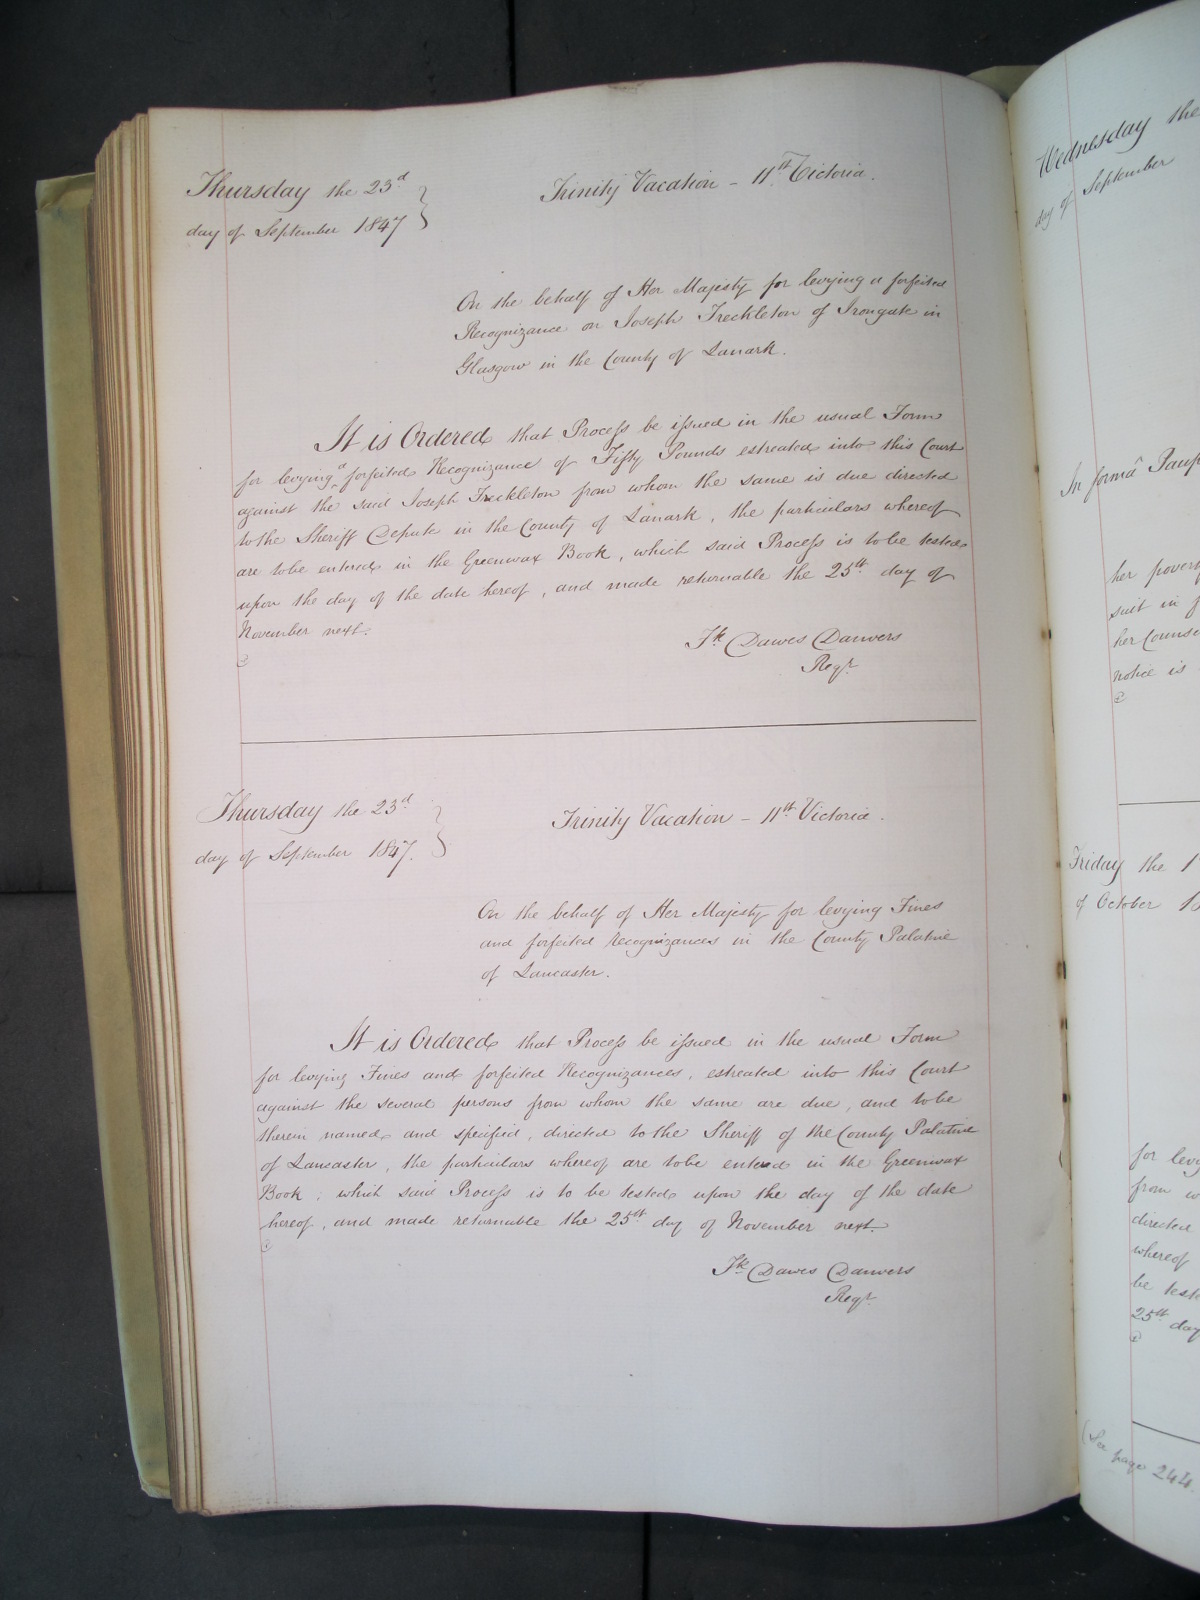 Thursday the 23d
day of September 1847
Trinity Vacation – 11th Victoria.
On the behalf of Her Majesty for levying a forfeited
Recognizance on Joseph Freckleton of Irongate in
Glasgow in the County of Lanark.
It is Ordered that Process be issued in the usual Form
for levying a forfeited Recognizance of Fifty Pounds estreated into this Court
against the said Joseph Freckleton from whom the same is due directed
to the Sheriff Depute in the County of Lanark, the particulars whereof
are to be entered in the Greenwax Book, which said Process is to be tested
upon the day of the date hereof, and made returnable the 25th day of
November next.
Fk Dawes Danvers
Regr.
Thursday the 23d
day of September 1847.
Trinity Vacation – 11th Victoria.
On the behalf of Her Majesty for levying Fines
and forfeited recognizances in the County Palatine
of Lancaster.
It is Ordered that Process be issued in the usual Form
for levying Fines and forfeited Recognizances, estreated into this Court
against the several persons from whom the same are due, and to be
therein named and specified, directed to the Sheriff of the County Palatine
of Lancaster, the particulars whereof are to be entered in the Greenwax
Book, which said Process is to be tested upon the day of the date
hereof, and made returnable the 25th day of November next.
Fk Dawes Danvers
Regr.
Wednesday the
day of September
In formâ
her
suit in
her Counse
notice is
Friday the 1
of October 1
for levy
from
directed
whereof
be
25th day
(See page 244.